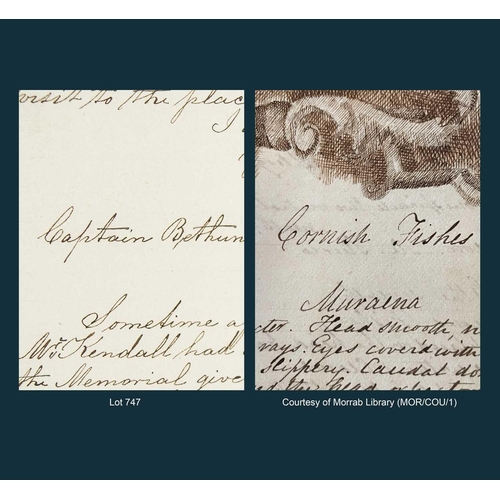 visit to the plac
Captain Bethun
Sometime a
Mr. Kendall had
the Memorial give
Lot 747
Cornish Fishes
Muraena
cter. Head smooth, n
rays. Eyes coverd with
Slippery. Caudal do
Courtesy of Morrab Library (MOR/COU/1)